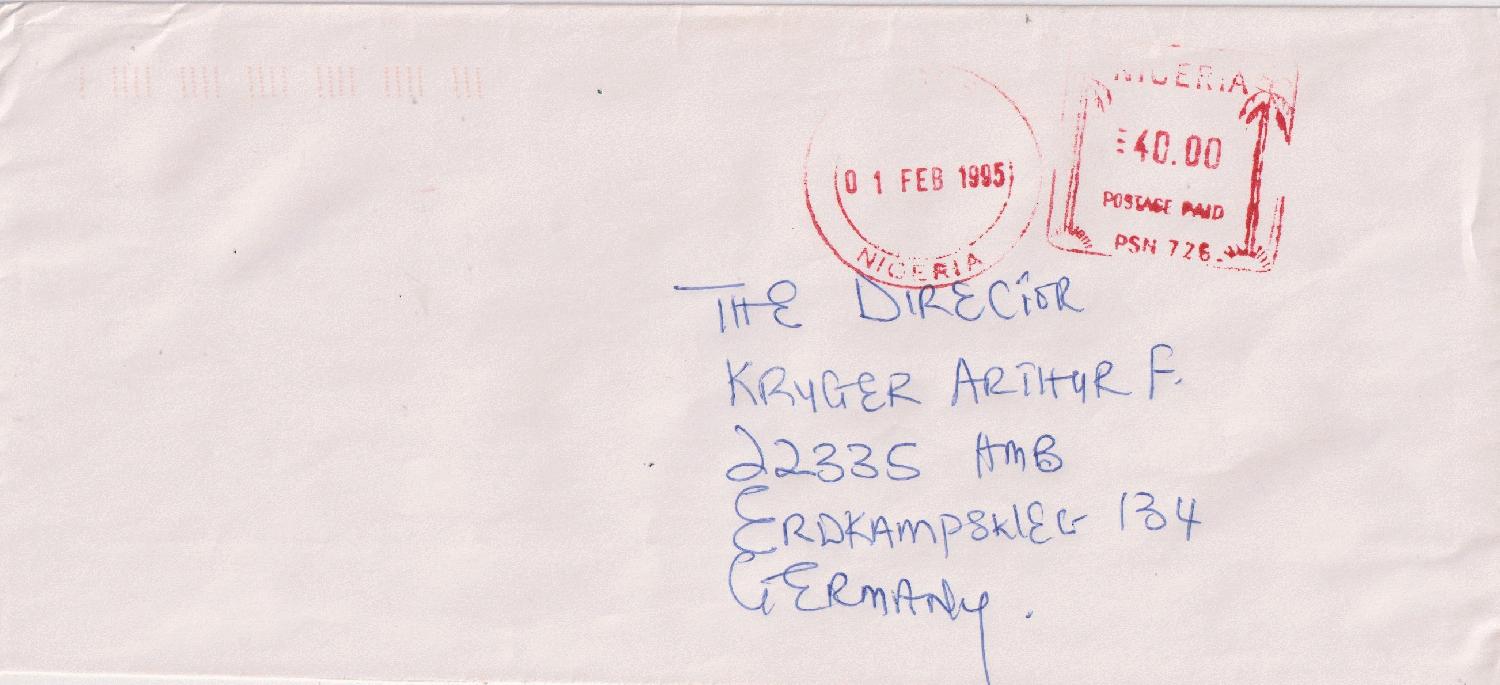 NIGERIA
40.00
POSTAGE PAID
PSN 726
01 FEB 1995
NIGERIA
THE DIRECTOR
KRYGER ARTHUR F.
22335 HMB
ERDKAMPSKIEG 134
GERMANY.